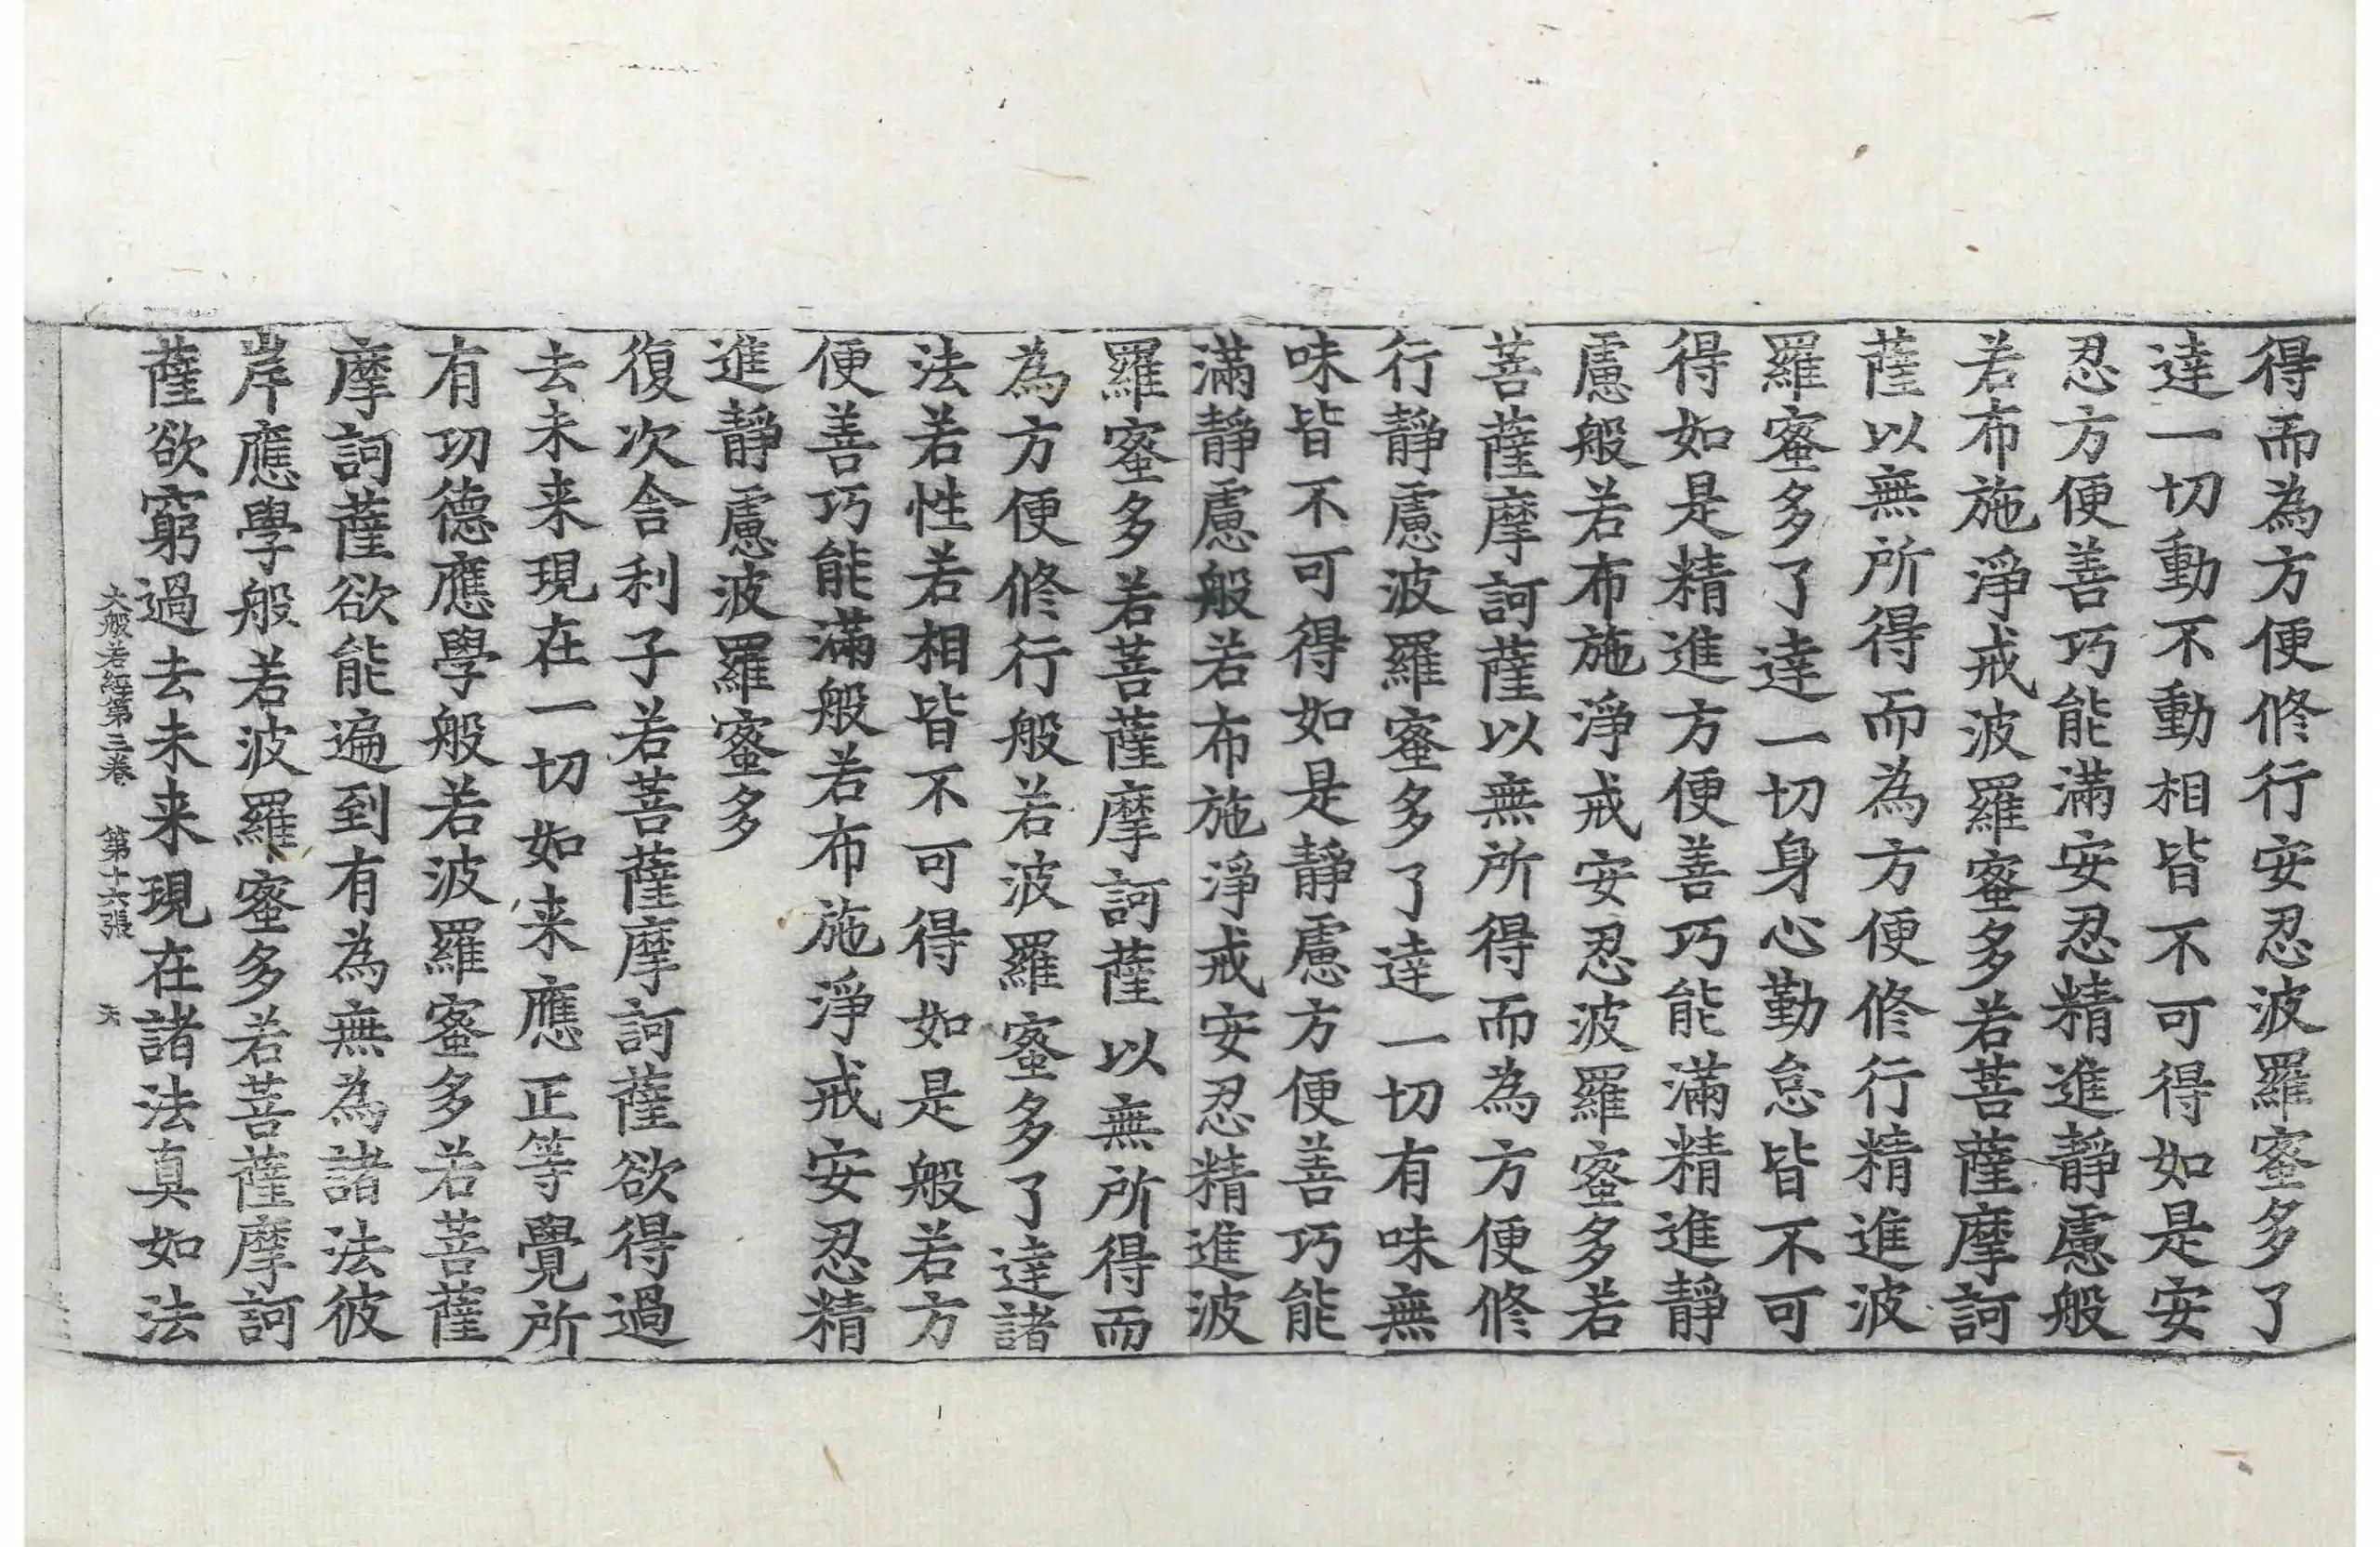 得而為方便修行安忍波羅蜜多了
達一切動不動相皆不可得如是安
忍方便善巧能滿安忍精進靜慮般
若布施淨戒波羅蜜多若菩薩摩訶
薩以無所得而為方便修行精進波
羅蜜多了達一切身心勤怠皆不可
得如是精進方便善巧能滿精進靜
慮般若布施淨戒安忍波羅蜜多若
菩薩摩訶薩以無所得而為方便修
行靜慮波羅蜜多了達一切有味無
味皆不可得如是靜慮方便善巧能
滿靜慮般若布施淨戒安忍精進波
羅蜜多若菩薩摩訶薩以無所得而
為方便修行般若波羅蜜多了達諸
法若性若相皆不可得如是般若方
便善巧能滿般若布施淨戒安忍精
進靜慮波羅蜜多
復次舍利子若菩薩摩訶薩欲得過
去未来現在一切如来應正等覺所
有功德應學般若波羅蜜多若菩薩
摩訶薩欲能遍到有為無為諸法彼
岸應學般若波羅蜜多若菩薩摩訶
薩欲窮過去未来現在諸法真如法
大般若經第三卷 第十六張 天